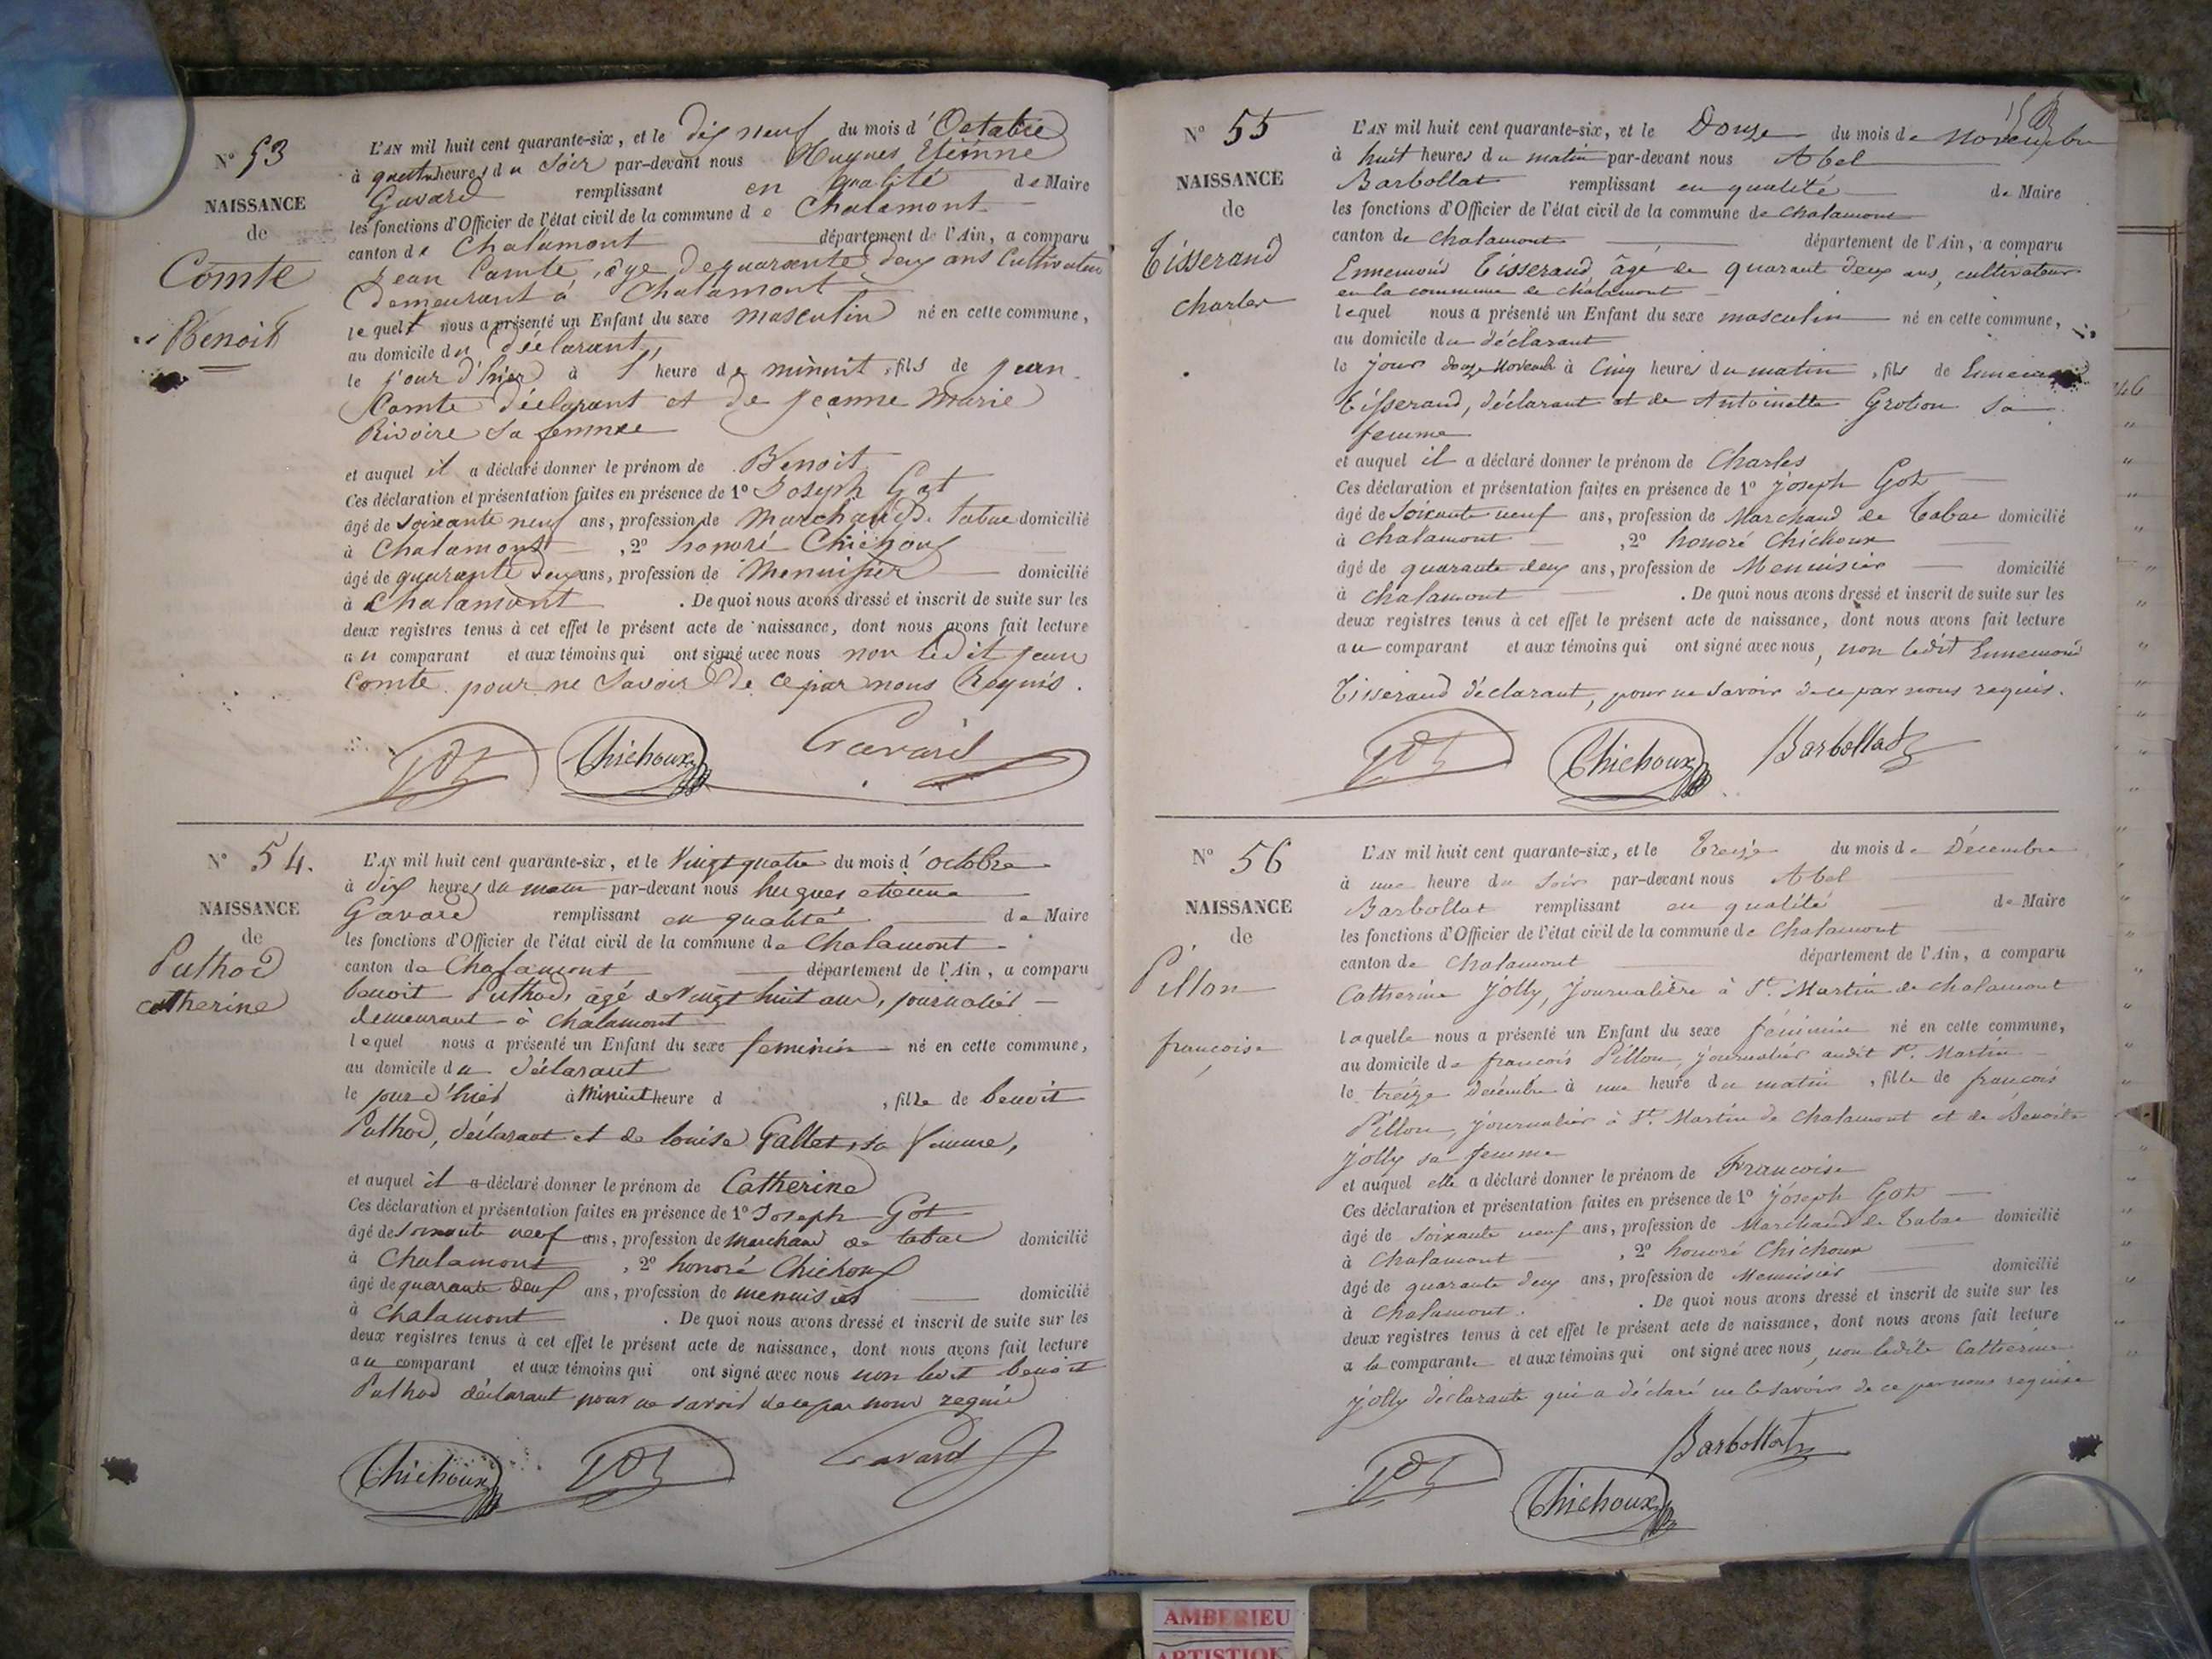 N° 53
NAISSANCE
de
Comte
Benoit
L'AN mil huit cent quarante-six, et le dix neuf du mois d'Octobre
à quatre heures du Soir par-devant nous Hugues Etienne
Gavard remplissant en qualité de Maire
les fonctions d'Officier de l'état civil de la commune de Chalamont
canton de Chalamont département de l'Ain, a comparu
Jean Comte, âgé de quarante deux ans Cultivateur
Demeurant à Chalamont
lequel nous a présenté un Enfant du sexe masculin né en cette commune,
au domicile du déclarant,
le jour d'hier à heure de minuit, fils de jean
Comte déclarant et de jeanne Marie
Rivoire Sa femme
et auquel il a déclaré donner le prénom de Benoit
Ces déclaration et présentation faites en présence de 1° Joseph Got
âgé de Soixante neuf ans, profession de Marchand d. tabac domicilié
à Chalamont, 2° honoré Chichoux
âgé de quarante deux ans, profession de Menuisier domicilié
à Chalamont. De quoi nous avons dressé et inscrit de suite sur les
deux registres tenus à cet effet le présent acte de naissance, dont nous avons fait lecture
au comparant et aux témoins qui ont signé avec nous non ledit jean
Comte pour ne Savoir De ce par nous Requis.
Got Chichoux Gavard
N° 54.
NAISSANCE
de
Puthod
catherine
L'AN mil huit cent quarante-six, et le Vingt quatre du mois d'octobre
à dix heures du matin par-devant nous hugues etienne
Gavard remplissant en qualité de Maire
les fonctions d'Officier de l'état civil de la commune de Chalamont
canton de Chalamont département de l'Ain, a comparu
benoit Puthod, âgé de Vingt huit ans, journalier
demeurant à chalamont
lequel nous a présenté un Enfant du sexe feminin né en cette commune,
au domicile du déclarant
le jour d'hier à Minuit heure d , fille de benoit
Puthod, déclarant et de louise Gallet, sa femme,
et auquel il a déclaré donner le prénom de Catherine
Ces déclaration et présentation faites en présence de 1° Joseph Got
âgé de soixante neuf ans, profession de marchand de tabac domicilié
à Chalamont, 2° honoré Chichoux
âgé de quarante deux ans, profession de menuisier domicilié
à chalamont. De quoi nous avons dressé et inscrit de suite sur les
deux registres tenus à cet effet le présent acte de naissance, dont nous avons fait lecture
au comparant et aux témoins qui ont signé avec nous non ledit benoit
Puthod déclarant pour ne savoir de ce par nous requis
Chichoux Got Gavard
N° 55
NAISSANCE
de
Tisserand
charles
L'AN mil huit cent quarante-six, et le Douze du mois de Novembre
à huit heures du matin par-devant nous Abel
Barbollat remplissant en qualité de Maire
les fonctions d'Officier de l'état civil de la commune de chalamont
canton de chalamont département de l'Ain, a comparu
Ennemond Tisserand, âgé de quarante deux ans, cultivateur
en la commune de chalamont
lequel nous a présenté un Enfant du sexe masculin né en cette commune,
au domicile du déclarant
le jour douze Novembre à Cinq heures du matin, fils de Ennemond
Tisserand, déclarant et de Antoinette Sa
femme
et auquel il a déclaré donner le prénom de Charles
Ces déclaration et présentation faites en présence de 1° joseph Got
âgé de Soixante neuf ans, profession de Marchand de Tabac domicilié
à Chalamont, 2° honoré Chichoux
âgé de quarante deux ans, profession de Menuisier domicilié
à chalamont. De quoi nous avons dressé et inscrit de suite sur les
deux registres tenus à cet effet le présent acte de naissance, dont nous avons fait lecture
au comparant et aux témoins qui ont signé avec nous, non ledit Ennemond
Tisserand déclarant, pour ne savoir de ce par nous requis.
Got Chichoux Barbollat
N° 56
NAISSANCE
de
Pillon
françoise
L'AN mil huit cent quarante-six, et le Treize du mois de Décembre
à une heure du Soir par-devant nous Abel
Barbollat remplissant en qualité de Maire
les fonctions d'Officier de l'état civil de la commune de Chalamont
canton de Chalamont département de l'Ain, a comparu
Catherine Jolly, Journalière à St. Martin de chalamont
laquelle nous a présenté un Enfant du sexe féminin né en cette commune,
au domicile de françois Pillon, journalier audit St. Martin
le treize décembre à une heure du matin, fille de françois
Pillon, journalier à St. Martin de Chalamont et de Benoite
Jolly sa femme
et auquel elle a déclaré donner le prénom de Françoise
Ces déclaration et présentation faites en présence de 1° joseph Got
âgé de soixante neuf ans, profession de Marchand de Tabac domicilié
à Chalamont, 2° honoré Chichoux
âgé de quarante deux ans, profession de Menuisier domicilié
à Chalamont. De quoi nous avons dressé et inscrit de suite sur les
deux registres tenus à cet effet le présent acte de naissance, dont nous avons fait lecture
a la comparante et aux témoins qui ont signé avec nous, non ladite Catherine
jolly déclarante qui a déclaré ne le savoir de ce par nous requise
Got Chichoux Barbollat
46
AMBERIEU